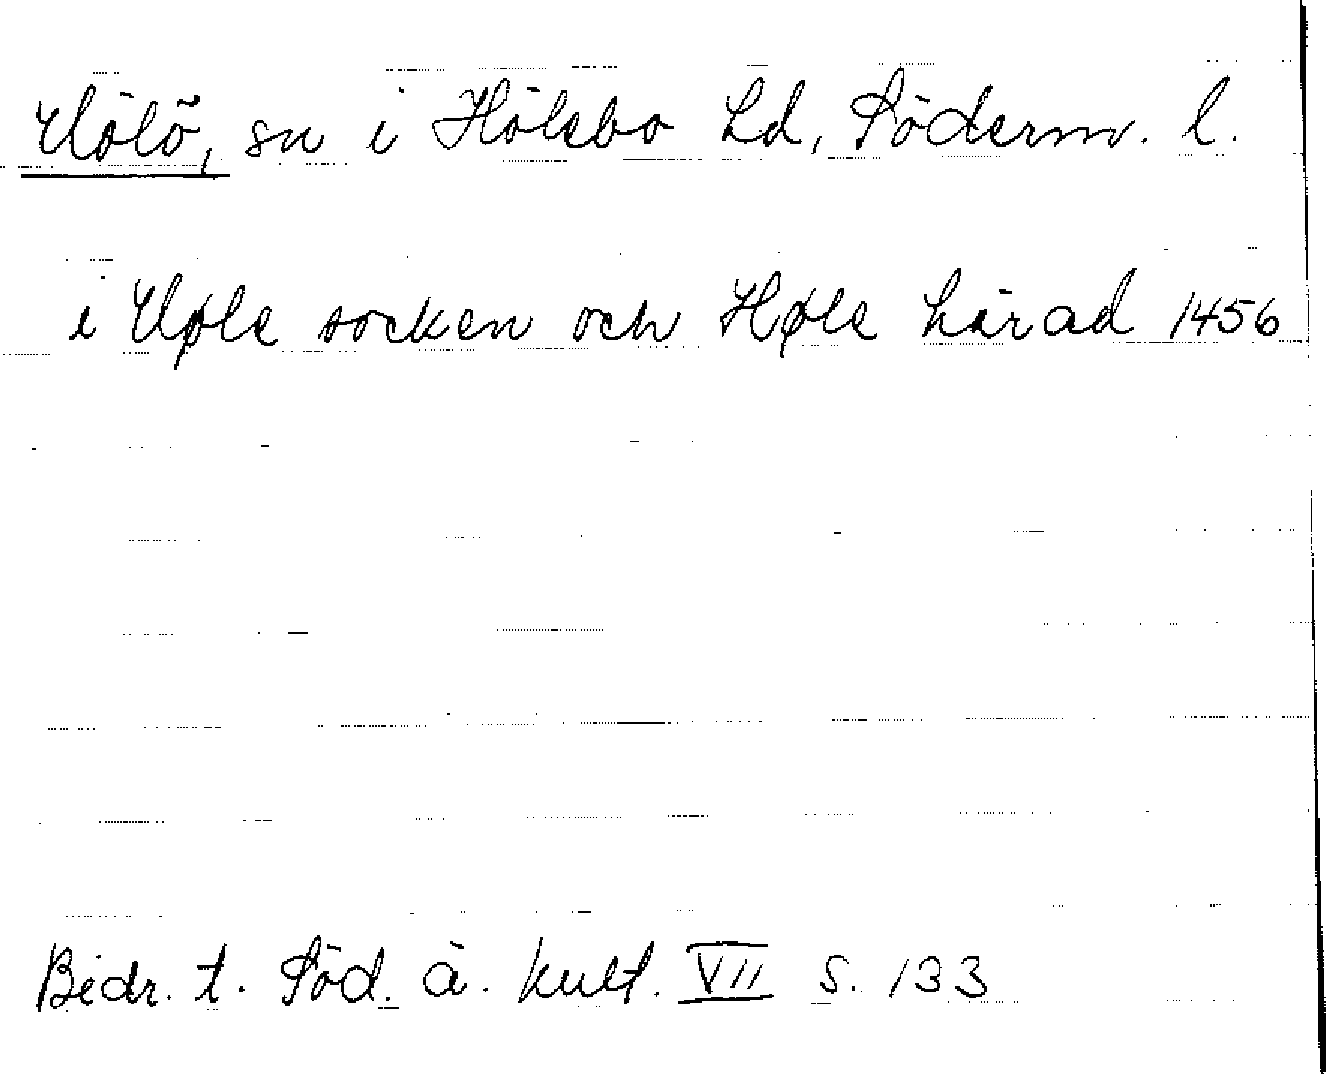 Hölö, sn i Hölebo hd, Söderm. l.
i Høle socken och Høle härad 1456
Bidr. t. Söd. ä. kult. VII s. 133